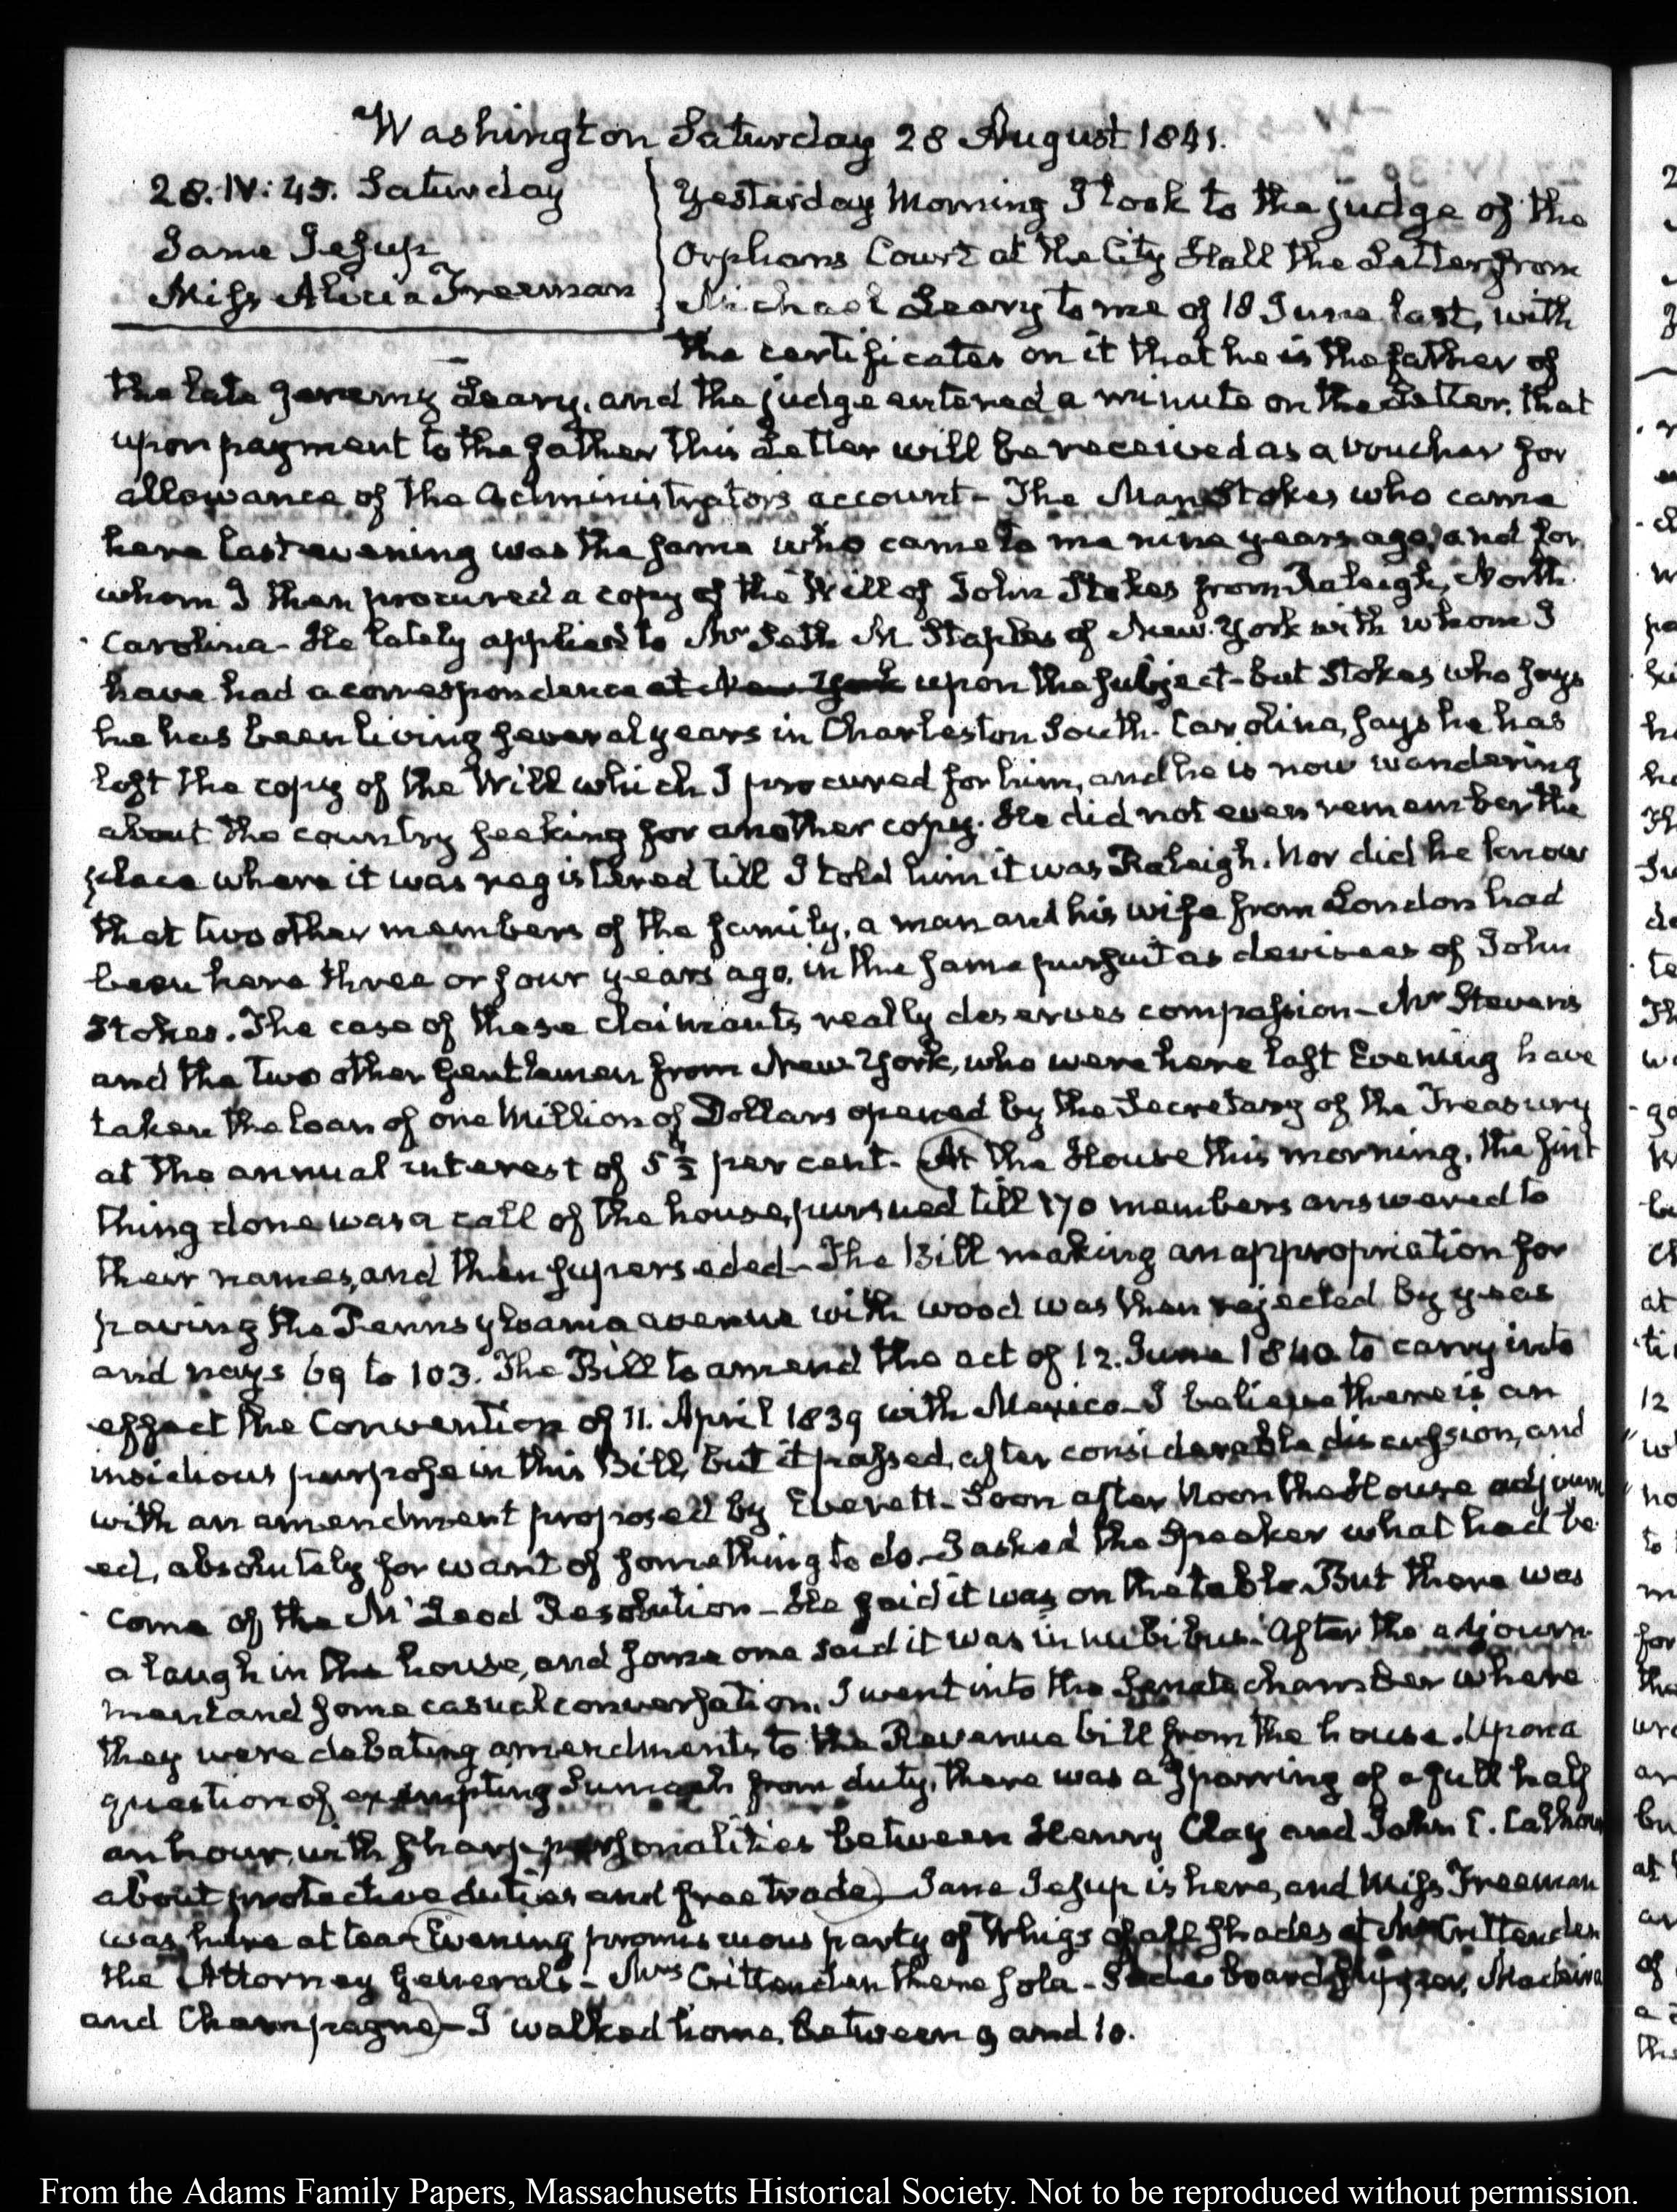 Washington Saturday 28 August 1841.
28. IV: 45. Saturday
Jane Jesup
Miss Alicia Freeman
Yesterday Morning I took to the judge of the
Orphans Court at the City Hall the Letter from
Michael Leary to me of 18 June last, with
the certificates on it that he is the father of
the late Jeremy Leary, and the judge entered a minute on the Letter, that
upon payment to the father this Letter will be received as a voucher for
allowance of the Administrator's account - The Man Stokes who came
here last evening was the same who came to me nine years ago, and for
whom I then procured a copy of the Will of John Stokes from Raleigh, North
Carolina - He lately applied to Mr Seth M. Staples of New-York with whom I
have had a correspondence at New York upon the subject - but Stokes who says
he has been living several years in Charleston South-Carolina, says he has
lost the copy of the Will which I procured for him, and he is now wandering
about the country seeking for another copy. He did not even remember the
place where it was registered till I told him it was Raleigh. Nor did he know
that two other members of the family, a man and his wife from London had
been here three or four years ago, in the same pursuit as devisees of John
Stokes. The case of these claimants really deserves compassion - Mr Stevens
and the two other Gentlemen from New-York, who were here last Evening have
taken the loan of one Million of Dollars opened by the Secretary of the Treasury
at the annual interest of 5 1/2 per cent - At the House this morning, the first
thing done was a call of the house, pursued till 170 members answered to
their names, and then superseded - The Bill making an appropriation for
paving the Pennsylvania avenue with wood was then rejected by yeas
and nays 69 to 103. The Bill to amend the act of 12. June 1840 to carry into
effect the Convention of 11. April 1839 with Mexico - I believe there is an
insidious purpose in this Bill, but it passed, after considerable discussion, and
with an amendment proposed by Everett - Soon after Noon the House adjourn
ed, absolutely for want of something to do - I asked the Speaker what had be
come of the McLeod Resolution - He said it was on the table. But there was
a laugh in the house, and some one said it was in nubibus. After the adjourn-
ment and some casual conversation, I went into the Senate chamber where
they were debating amendments to the Revenue bill from the house. Upon a
question of exempting Sumach from duty, there was a sparring of a full half
an hour, with sharp personalities between Henry Clay and John C. Calhoun
about protective duties and free trade - Jane Jesup is here, and Miss Freeman
was here at tea - Evening promiscuous party of Whigs of all shades at Mr Crittenden
the Attorney General's - Mrs Crittenden there sola - Side board supper, Madeira
and Champagne - I walked home, between 9 and 10.
From the Adams Family Papers, Massachusetts Historical Society. Not to be reproduced without permission.